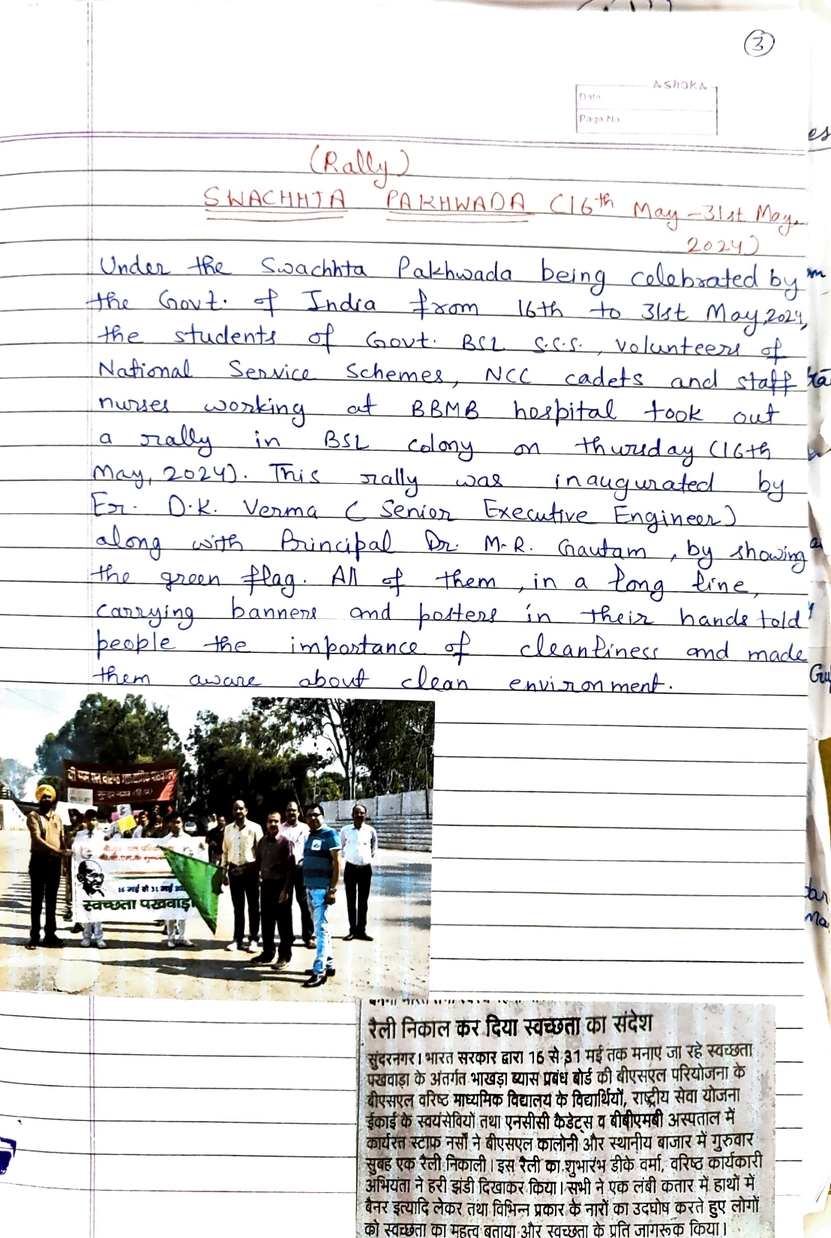 3
ASHOKA
Date
Page No.
(Rally)
SWACHHTA PAKHWADA (16th May - 31st May,
2024)
Under the Swachhta Pakhwada being celebrated by
the Govt. of India from 16th to 31st May, 2024,
the students of Govt. BSL S.S.S., volunteers of
National Service Schemes, NCC cadets and staff
nurses working at BBMB hospital took out
a rally in BSL colony on thursday (16th
May, 2024). This rally was inaugurated by
Er. D.K. Verma ( Senior Executive Engineer)
along with Principal Dr. M.R. Gautam, by showing
the green flag. All of them, in a long line,
carrying banners and posters in their hands told
people the importance of cleanliness and made
them aware about clean environment.
16 मई से 31 मई
स्वच्छता पखवाड़ा
रैली निकाल कर दिया स्वच्छता का संदेश
सुंदरनगर। भारत सरकार द्वारा 16 से 31 मई तक मनाए जा रहे स्वच्छता
पखवाड़ा के अंतर्गत भाखड़ा ब्यास प्रबंध बोर्ड की बीएसएल परियोजना के
बीएसएल वरिष्ठ माध्यमिक विद्यालय के विद्यार्थियों, राष्ट्रीय सेवा योजना
ईकाई के स्वयंसेवियों तथा एनसीसी कैडेट्स व बीबीएमबी अस्पताल में
कार्यरत स्टाफ नर्सों ने बीएसएल कालोनी और स्थानीय बाजार में गुरुवार
सुबह एक रैली निकाली। इस रैली का शुभारंभ डीके वर्मा, वरिष्ठ कार्यकारी
अभियंता ने हरी झंडी दिखाकर किया। सभी ने एक लंबी कतार में हाथों में
बैनर इत्यादि लेकर तथा विभिन्न प्रकार के नारों का उदघोष करते हुए लोगों
को स्वच्छता का महत्व बताया और स्वच्छता के प्रति जागरूक किया।